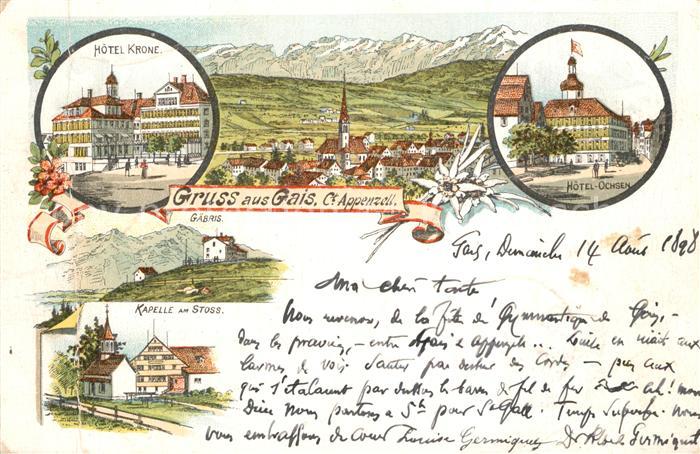 HÔTEL KRONE.
HÔTEL-OCHSEN.
Gruss aus Gais, Ct. Appenzell.
GÄBRIS.
KAPELLE AM STOSS.
Gais, Dimanche 14 Août 1898
Ma chère tante
Nous revenons, de la fête de Gymnastique de Gais, -
dans les prairies, - entre Gais & Appenzell... Louise en riait aux
larmes de voir sauter par dessus les cordes - puis ceux
qui s'étalaient par dessus la barre de fil de fer ah! mon
Dieu nous partons à 5h pour St Gall. Temps superbe. nous
vous embrassons de coeur Louise Germiquet Dr Germiquet